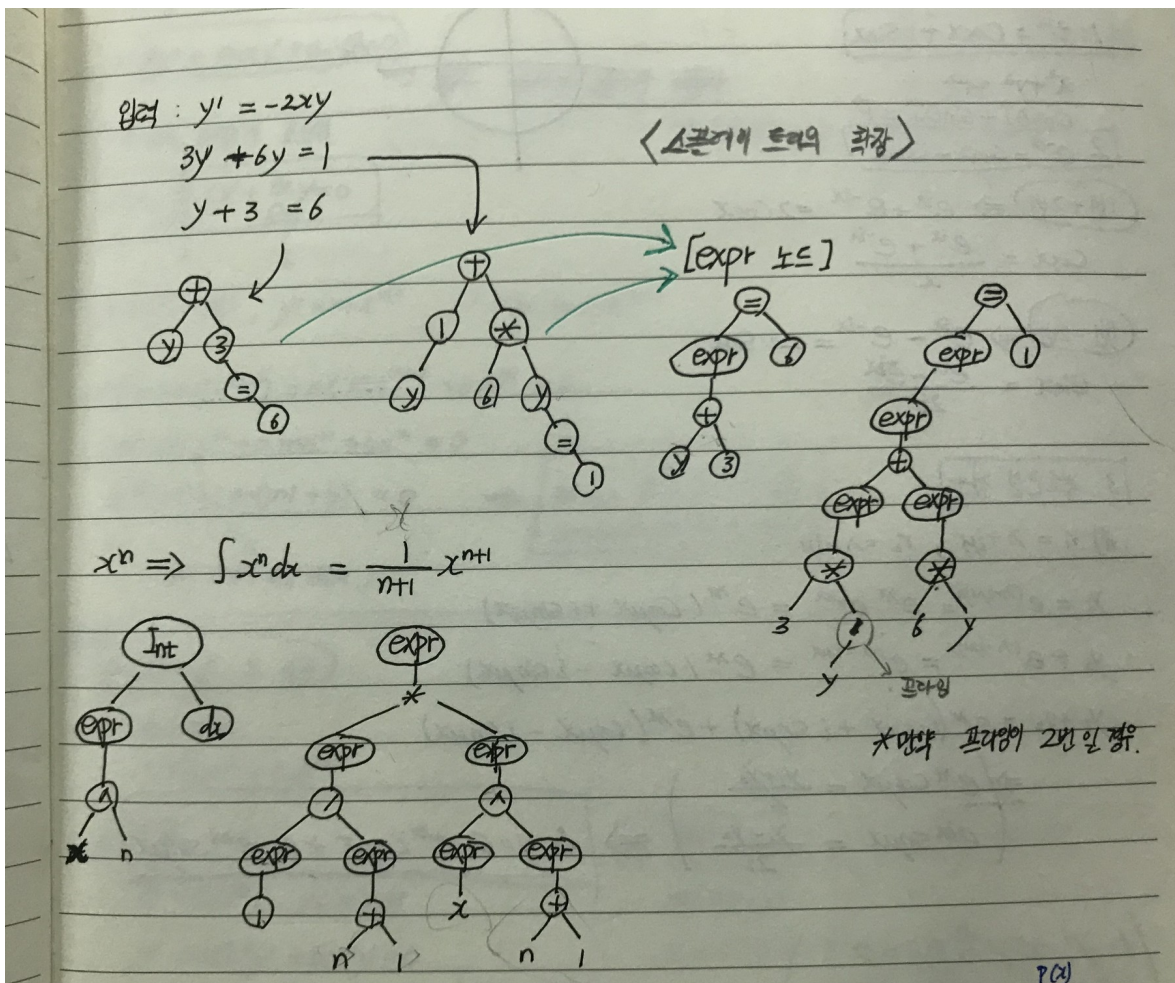 입력 : y' = -2xy
3y' + 6y = 1
y + 3 = 6
<스플레이 트리의 확장>
[expr 노드]
+
y 3
=
6
+
1 *
y 6 y
=
1
=
expr 6
+
y 3
=
expr 1
expr
+
expr expr
* *
3 6 y
y 프라임
*만약 프라임이 2번 일 경우.
xⁿ ⇒ ∫xⁿdx = 1/(n+1) xⁿ⁺¹
Int
expr dx
^
x n
expr
*
expr expr
/ ^
expr expr expr expr
1 + x +
n 1 n 1
P(x)